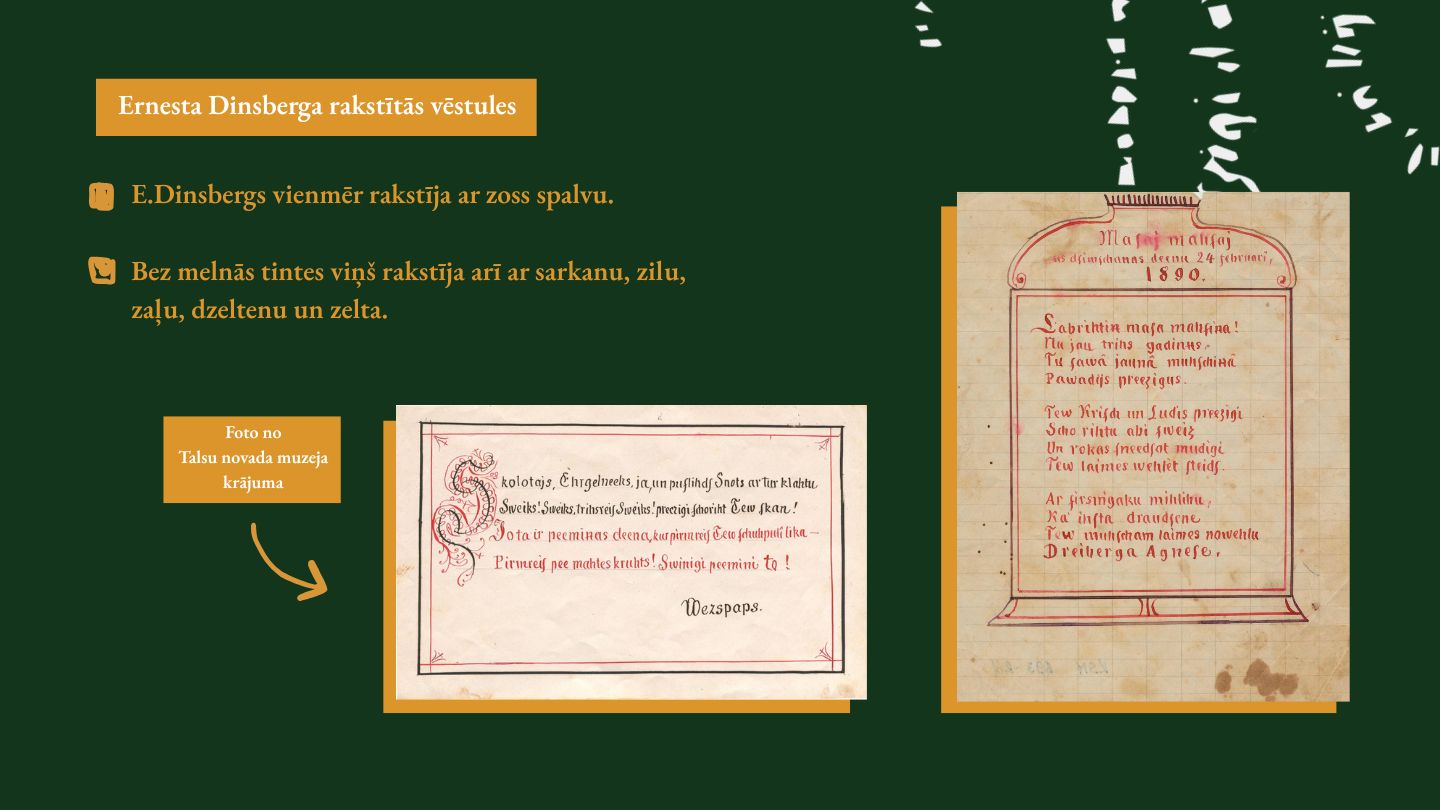 Ernesta Dinsberga rakstītās vēstules
E.Dinsbergs vienmēr rakstīja ar zoss spalvu.
Bez melnās tintes viņš rakstīja arī ar sarkanu, zilu,
zaļu, dzeltenu un zelta.
Foto no
Talsu novada muzeja
krājuma
Skolotajs, Ehrgelneeks, ja, un puslihds Snots ar Tur klahtu
Sweiks! Sweiks, trihsreiſ Sweiks! preezigi ſchoriht Tew ſkan!
Jo ta ir peeminas deena, kur pirmreiſ Tew
Pirmreiſ pee mahtes kruhts! Swinigi peemini to!
Wezspaps.
Maſaj mahſaj
us dſimſchanas deenu 24 februari,
1890.
Labrihtin maſa mahſina!
Nu jau trihs gadinus,
Tu ſawā jaunā muhſchinā
Pawadijs preezigus.
Tew Kriſch un Ludis preezigi
Scho rihtu abi ſweiz
Un rokas ſneedſot mudigi
Tew laimes wehlēt ſteidſ.
Ar ſirsningaku mihlibu,
Ka ihſta draudſene
Tew muhſcham laimes nowehlu
Dreiberga Agneſe.